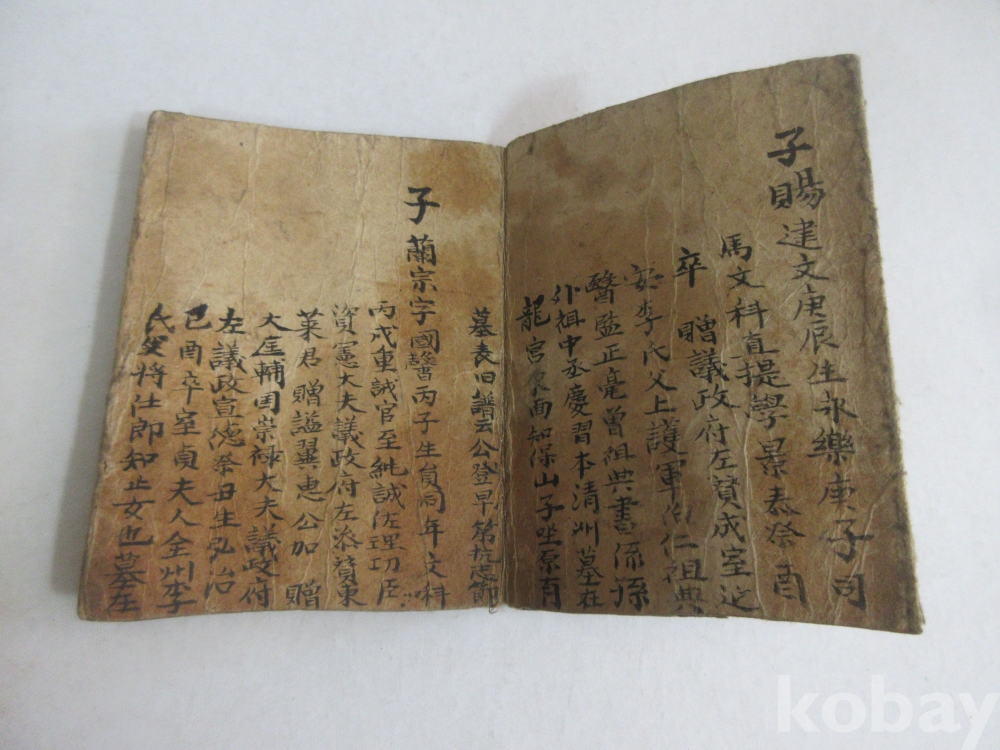 子賜建文庚辰生永樂庚子司
馬文科直提學景泰癸酉
卒 贈議政府左贊成室延
安李氏父上護軍伯仁祖典
醫監正亳曾祖典書係孫
外祖中丞慶習本清州墓在
龍宮 面知保山子坐原有
墓表旧譜云公登早第抗志節
子蘭宗字國馨 丙子生員同年文科
丙戌重試官至純誠佐理功臣
資憲大夫議政府左添贊東
萊君贈謚翼惠公加 贈
大匡輔国崇祿大夫議政府
左議政宣德癸丑生弘治
己酉卒室貞夫人全州李
氏父將仕郎知止女也墓在
kobay